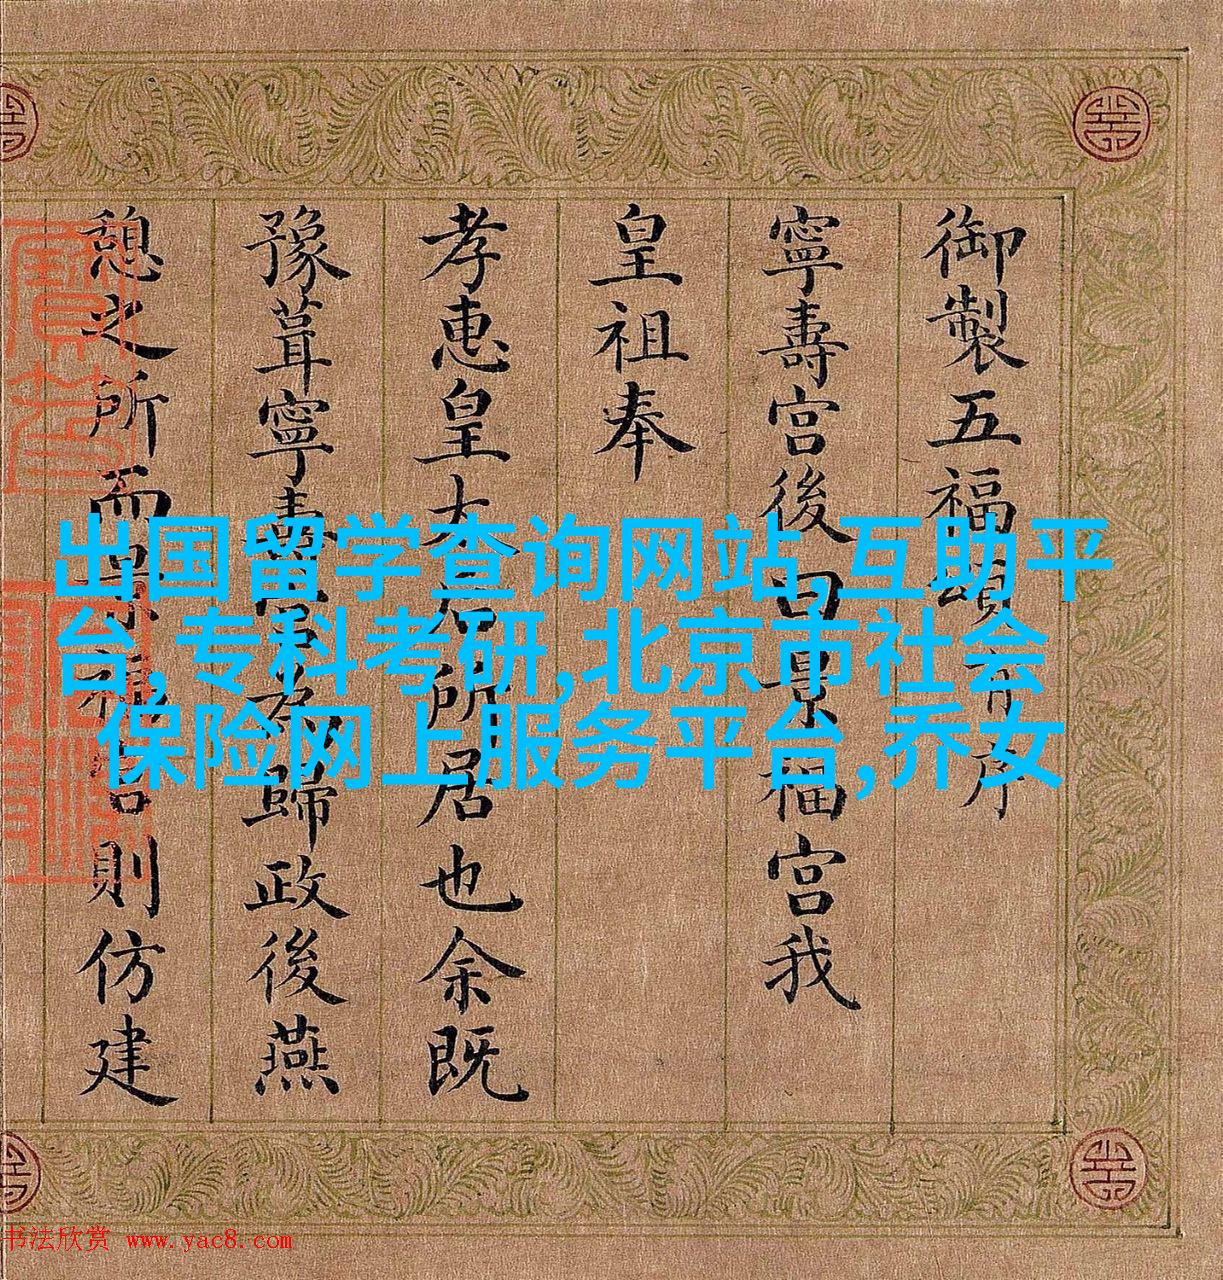 御製五福頌有序
寧壽宮後曰景福宮我
皇祖奉
孝惠皇太后所居也余既
豫葺寧壽宮為歸政後燕
憩之所而景福宮則仿建
出国留学查询网站,互助平
台,专科考研,北京市社会
保险网上服务平台,乔女
书法欣赏 www.yac8.com